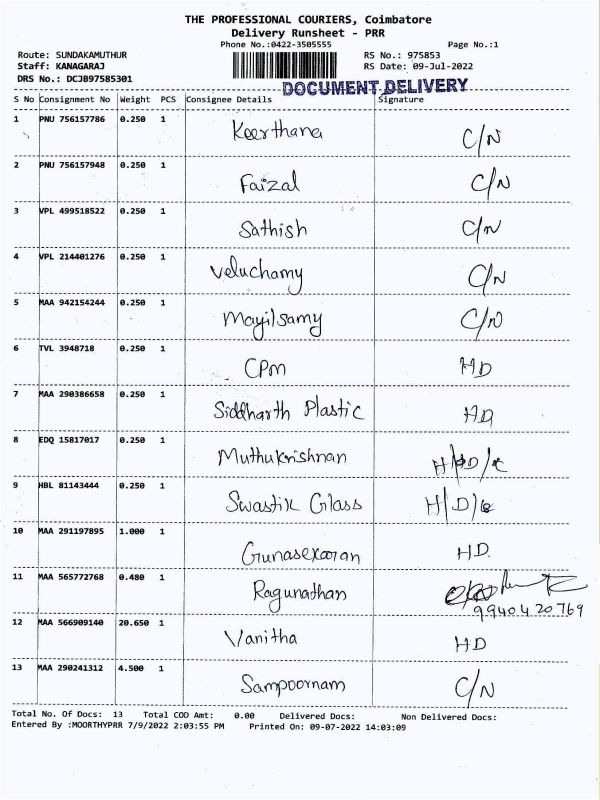 THE PROFESSIONAL COURIERS, Coimbatore
Delivery Runsheet - PRR
Phone No.:0422-3505555 Page No.:1
Route: SUNDAKAMUTHUR RS No.: 975853
Staff: KANAGARAJ RS Date: 09-Jul-2022
DRS No.: DCJ897585301
DOCUMENT DELIVERY
S No Consignment No Weight PCS Consignee Details Signature
1 PNU 756157786 0.250 1 Keerthana C/N
2 PNU 756157948 0.250 1 Faizal C/N
3 VPL 499518522 0.250 1 Sathish C/N
4 VPL 214401276 0.250 1 Veluchamy C/N
5 MAA 942154244 0.250 1 Mayilsamy C/N
6 TVL 3948718 0.250 1 CPM HD
7 MAA 290386658 0.250 1 Siddharth Plastic HD
8 EDQ 15817017 0.250 1 Muthukrishnan
9 HBL 81143444 0.250 1 Swastik Glass H/D/
10 MAA 291197895 1.000 1 Gunasekaran HD.
11 MAA 565772768 0.480 1 Ragunathan
9940420769
12 MAA 566909140 20.650 1 Vanitha HD
13 MAA 290241312 4.500 1 Sampoornam C/N
Total No. Of Docs: 13 Total COD Amt: 0.00 Delivered Docs: Non Delivered Docs:
Entered By :MOORTHYPRR 7/9/2022 2:03:55 PM Printed On: 09-07-2022 14:03:09